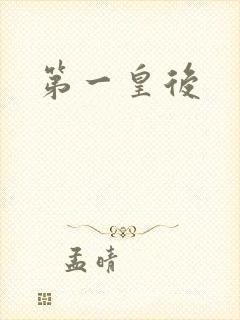 第一皇後
孟晴